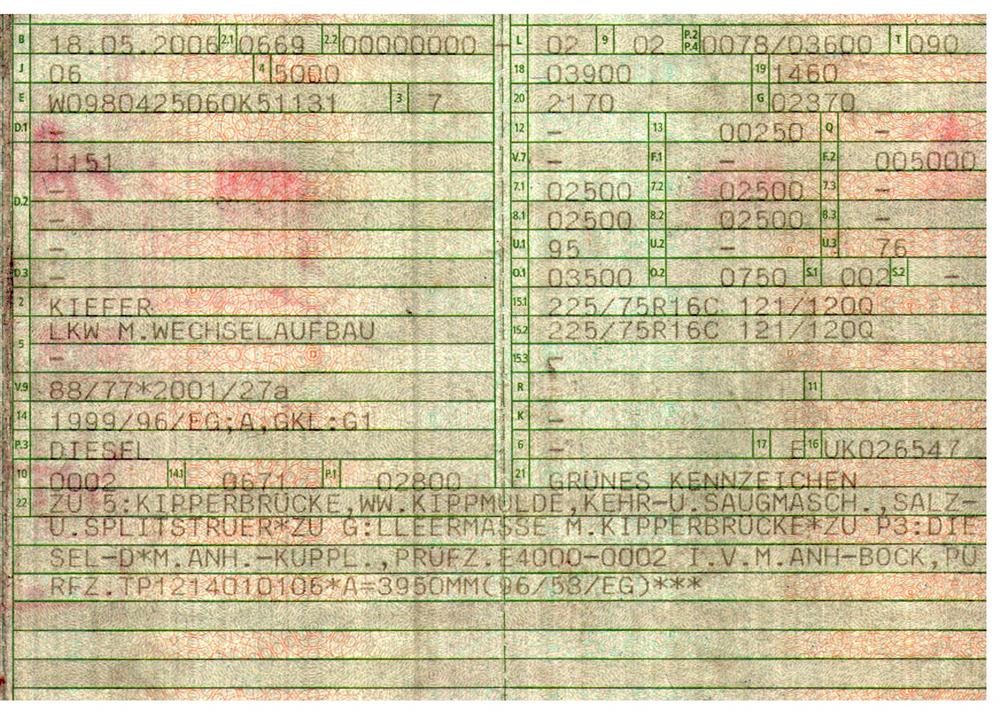 B 18.05.2006 2.1 0669 2.2 00000000
J 06 4 5000
E W0980425060K51131 3 7
D.1 –
1151
D.2 –
–
–
D.3 –
2 KIEFER
5 LKW M.WECHSELAUFBAU
–
V.9 88/77*2001/27a
14 1999/96/EG;A,GKL:G1
P.3 DIESEL
10 0002 14.1 0671 P.1 02800
L 02 9 02 P.2 P.4 0078/03600 T 090
18 03900 19 1460
20 2170 G 02370
12 – 13 00250 Q –
V.7 – F.1 – F.2 005000
7.1 02500 7.2 02500 7.3 –
8.1 02500 8.2 02500 8.3 –
U.1 95 U.2 – U.3 76
O.1 03500 O.2 0750 S.1 002 S.2 –
15.1 225/75R16C 121/120Q
15.2 225/75R16C 121/120Q
15.3 –
R – 11
K –
6 – 17 E 16 UK026547
21 GRÜNES KENNZEICHEN
22 ZU 5:KIPPERBRÜCKE,WW.KIPPMULDE,KEHR-U.SAUGMASCH.,SALZ-
U.SPLITSTRUER*ZU G:LLEERMASSE M.KIPPERBRÜCKE*ZU P3:DIE
SEL-D*M.ANH.-KUPPL.,PRÜFZ.F4000-0002 I.V.M.ANH-BOCK,PÜ
RFZ.TP1214010106*A=3950MM(96/53/EG)***